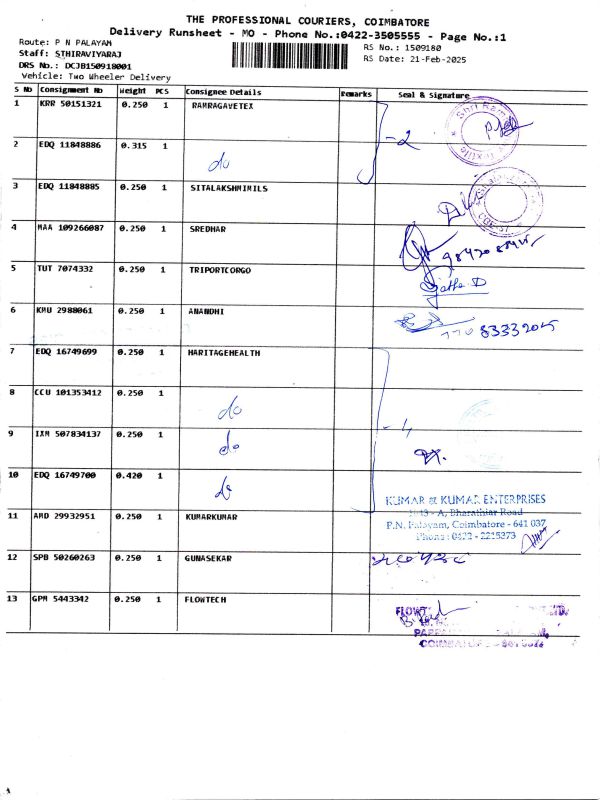 THE PROFESSIONAL COURIERS, COIMBATORE
Delivery Runsheet - MO - Phone No.:0422-3505555 - Page No.:1
Route: P N PALAYAM
RS No.: 1509180
Staff: STHIRAVIYARAJ
RS Date: 21-Feb-2025
DRS No.: DCJB150918001
Vehicle: Two Wheeler Delivery
S No Consignment No Weight PCS Consignee Details Remarks Seal & Signature
1 KRR 50151321 0.250 1 RAMRAGAVETEX
2 EDQ 11848886 0.315 1 do
- 2
3 EDQ 11848885 0.250 1 SITALAKSHMIMILS
4 MAA 109266087 0.250 1 SREDHAR
5 TUT 7074332 0.250 1 TRIPORTCORGO
6 KMU 2988061 0.250 1 ANANDHI
7 EDQ 16749699 0.250 1 HARITAGEHEALTH
8 CCU 101353412 0.250 1 do
9 IXM 507834137 0.250 1 do
- 4
10 EDQ 16749700 0.420 1 do
KUMAR & KUMAR ENTERPRISES
A, Bharathiar Road
P.N. Palayam, Coimbatore - 641 037
Phone : 0422 - 2215273
11 AMD 29932951 0.250 1 KUMARKUMAR
12 SPB 50260263 0.250 1 GUNASEKAR
13 GPM 5443342 0.250 1 FLOWTECH